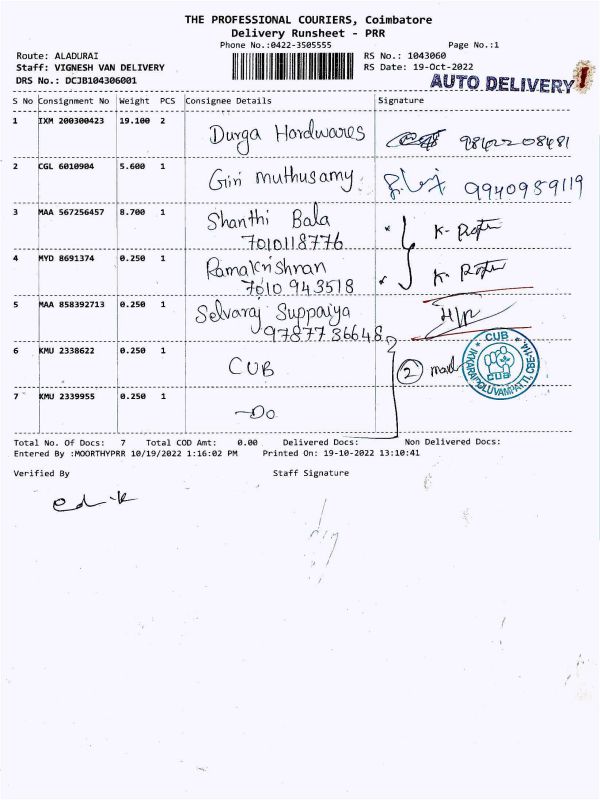 THE PROFESSIONAL COURIERS, Coimbatore
Delivery Runsheet - PRR
Phone No.:0422-3505555 Page No.:1
Route: ALADURAI RS No.: 1043060
Staff: VIGNESH VAN DELIVERY RS Date: 19-Oct-2022
DRS No.: DCJB104306001 AUTO DELIVERY
S No Consignment No Weight PCS Consignee Details Signature
1 IXM 200300423 19.100 2 Durga Hardwares 9842208481
2 CGL 6010904 5.600 1 Giri muthusamy 9940959119
3 MAA 567256457 8.700 1 Shanthi Bala
7010118776
4 MYD 8691374 0.250 1 Ramakrishnan
7010943518
5 MAA 858392713 0.250 1 Selvaraj Suppaiya
9787736648
6 KMU 2338622 0.250 1 CUB 2
CUB
IKKARAIPOLUVAMPATTI, CBE-114
CUB
7 KMU 2339955 0.250 1 -Do
Total No. Of Docs: 7 Total COD Amt: 0.00 Delivered Docs: Non Delivered Docs:
Entered By :MOORTHYPRR 10/19/2022 1:16:02 PM Printed On: 19-10-2022 13:10:41
Verified By Staff Signature